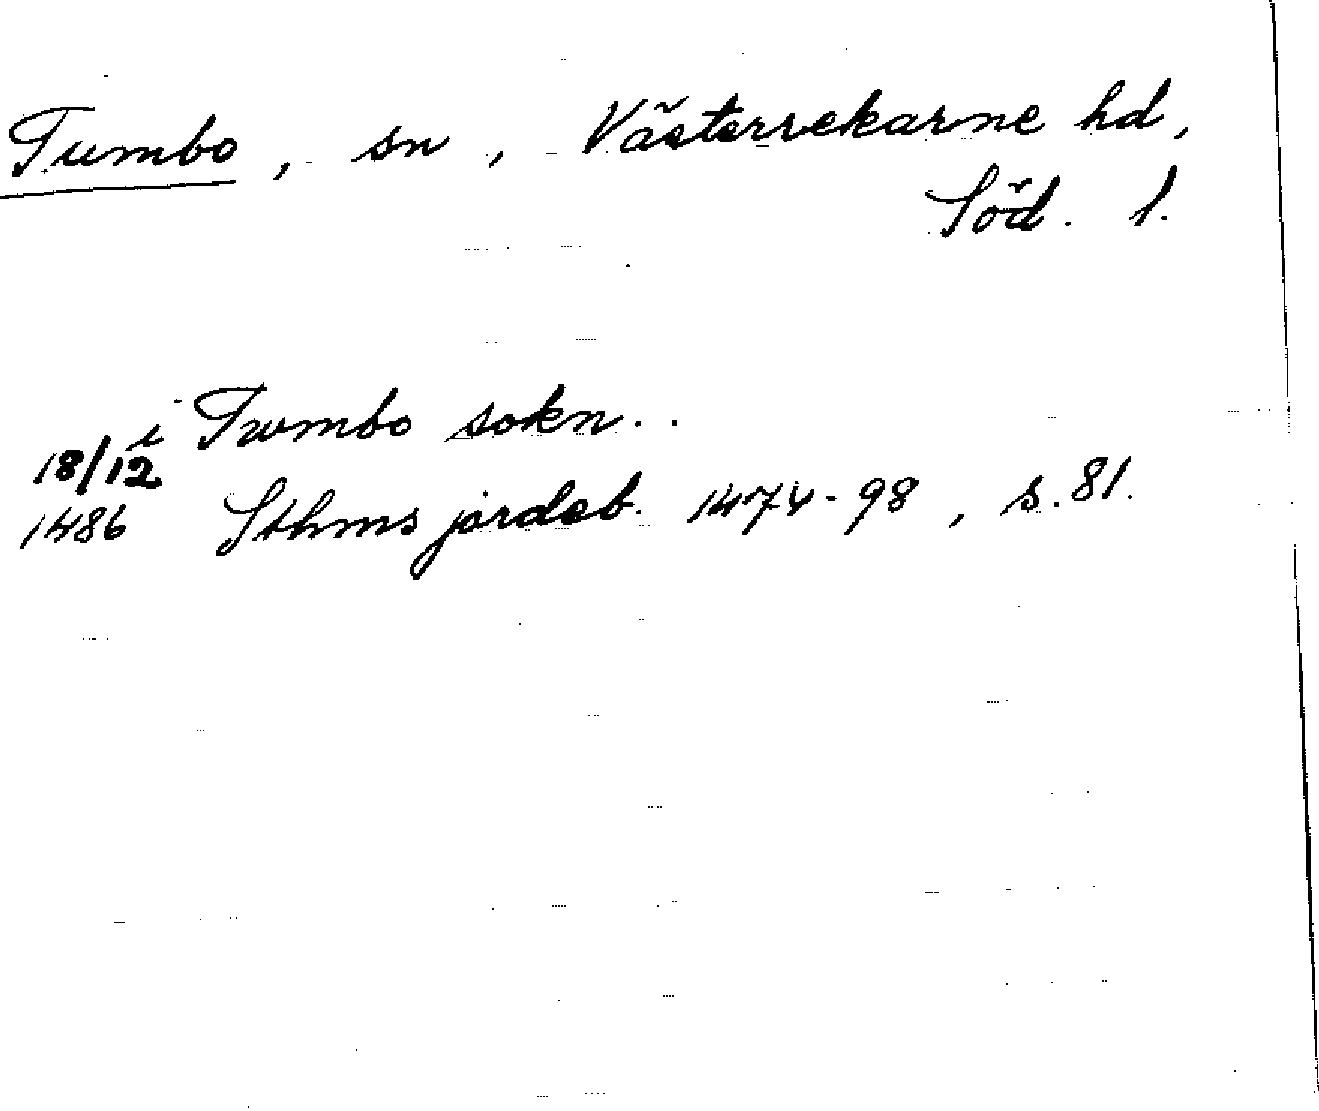 Tumbo, sn, Västerrekarne hd,
Söd. l.
i Twmbo sokn..
18/12
1486 Sthms jordeb. 1474-98, s. 81.